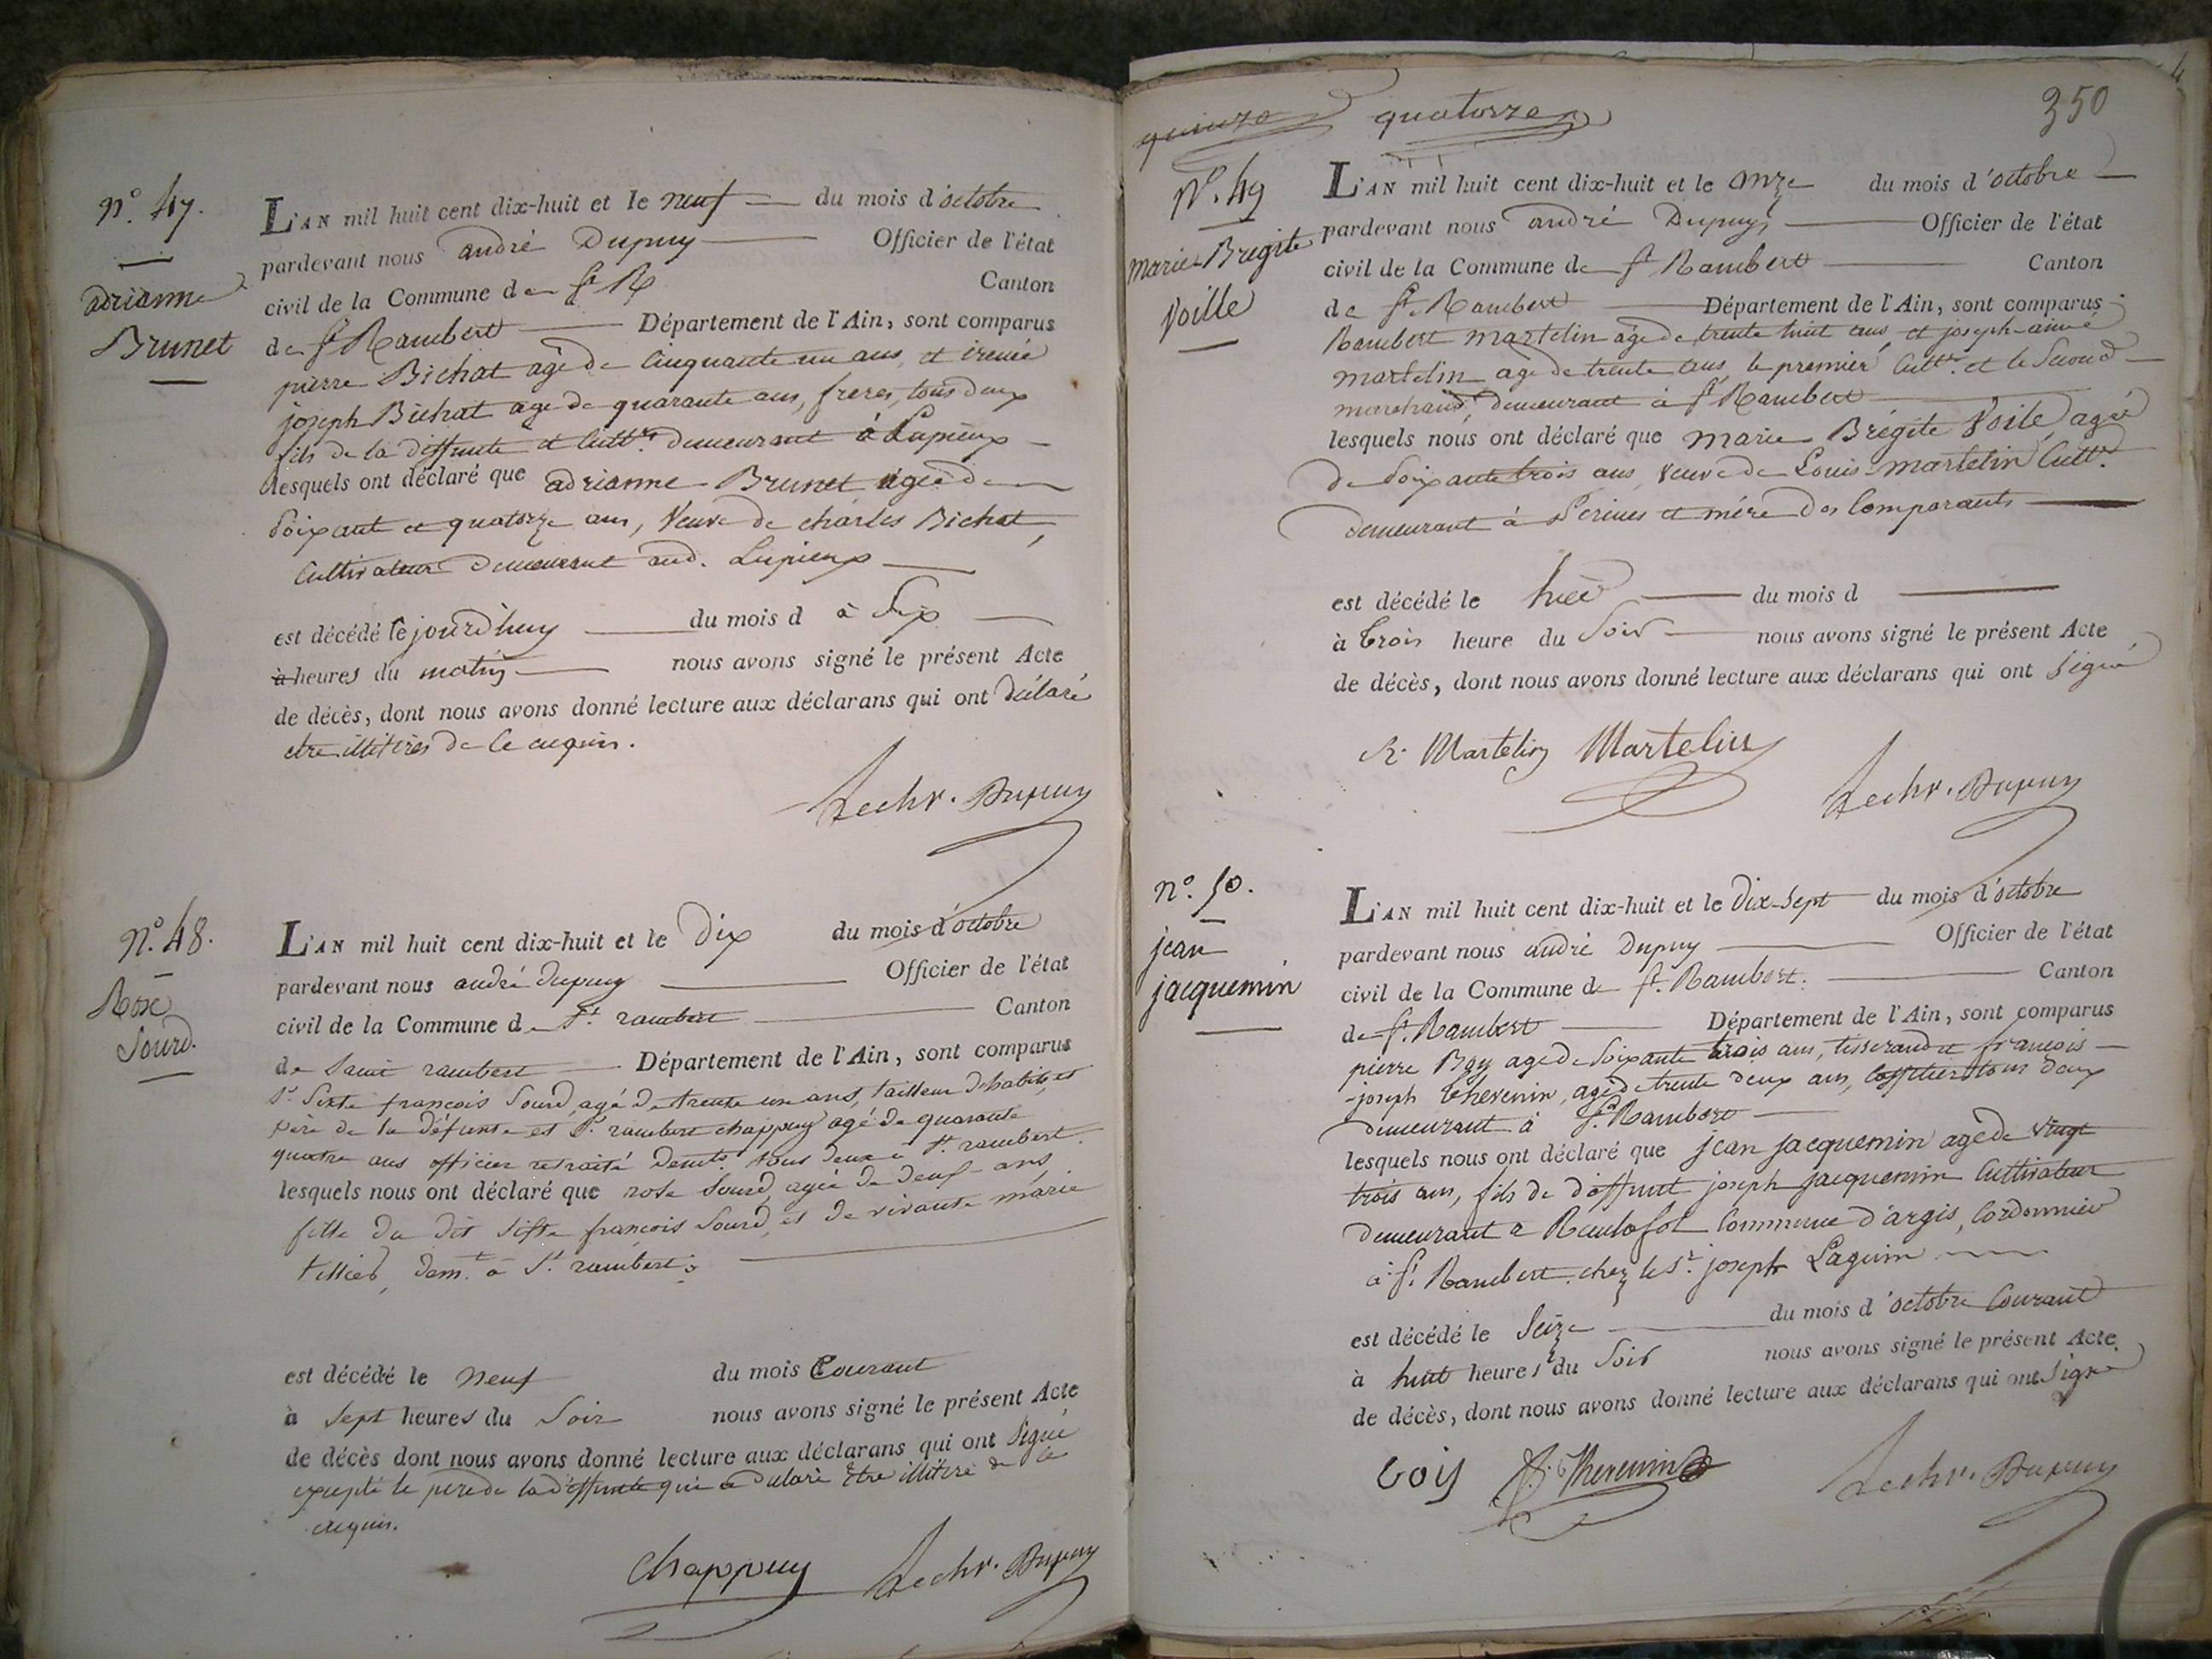 n.o 47.
adrianne
Brunet
L'AN mil huit cent dix-huit et le neuf du mois d'octobre
pardevant nous andré Dupuy Officier de l'état
civil de la Commune de St R Canton
de St Rambert Département de l'Ain, sont comparus
pierre Bichat agé de Cinquante un ans, et irenée
joseph Bichat agé de quarante ans, freres, tous deux
fils de la deffunte et Cultrs demeurant à Lupieux
lesquels ont déclaré que adrianne Brunet agée de
Soixant et quatorze ans, Veuve de charles Bichat,
Cultivateur demeurant aud. Lupieux
est décédé le jourd'huy du mois d à Six
à heures du matin nous avons signé le présent Acte
de décès, dont nous avons donné lecture aux déclarans qui ont déclaré
etre illitéres de ce enquis.
Lechr. Dupuy
N.o 48.
Rose
Sourd.
L'AN mil huit cent dix-huit et le Dix du mois d'octobre
pardevant nous andré dupuy Officier de l'état
civil de la Commune de St. rambert Canton
de Saint rambert Département de l'Ain, sont comparus
Sr. Sixte françois Sourd, agé de trente un ans, tailleur d'habits, et
père de la défunte et Sr. rambert chappuy agé de quarante
quatre ans officier retraité demts. tous deux à St. rambert.
lesquels nous ont déclaré que rose Sourd, agée de deux ans,
fille du dit Sifte françois Sourd, et de vivante marie
tillier, demt. à St. rambert
est décédé le neuf du mois Courant
à Sept heures du Soir nous avons signé le présent Acte
de décès dont nous avons donné lecture aux déclarans qui ont Signé
excepté le pere de la deffunte qui a déclaré être illitéré de ce
enquis.
Chappuy Lechr. Dupuy
quinze quatorze
350
N.o 49
marie Brégite
Voille
L'AN mil huit cent dix-huit et le onze du mois d'octobre
pardevant nous andré Dupuy Officier de l'état
civil de la Commune de St Rambert Canton
de St. Rambert Département de l'Ain, sont comparus
Rambert martelin agé de trente huit ans, et joseph-aimé
martelin agé de trente ans, le premier Cultr. et le Second
marchand, demeurant à St Rambert
lesquels nous ont déclaré que marie Brégite Voile, agée
de Soixante trois ans, veuve de Louis martelin Cultr.
demeurant à Serines et mére des Comparants
est décédé le hier du mois d
à trois heure du Soir nous avons signé le présent Acte
de décès, dont nous avons donné lecture aux déclarans qui ont signé
R. Martelin Martelin
Lechr. Dupuy
n.o 50.
jean
jacquemin
L'AN mil huit cent dix-huit et le Dix-sept du mois d'octobre
pardevant nous andré dupuy Officier de l'état
civil de la Commune de St. Rambert. Canton
de St. Rambert Département de l'Ain, sont comparus
pierre Bay agé de Soixante trois ans, tisserand et françois
joseph thevenin, agé de trente deux ans, tous deux
demeurant à St. Rambert
lesquels nous ont déclaré que jean jacquemin agé de vingt
trois ans, fils de deffunt joseph jacquemin Cultivateur
demeurant a Commune d'argis, Cordonnier
à St Rambert chez le Sr. joseph Laguin
est décédé le Seize du mois d'octobre Courant
à huit heures du Soir nous avons signé le présent Acte
de décès, dont nous avons donné lecture aux déclarans qui ont Signé
Thevenin Lechr. Dupuy